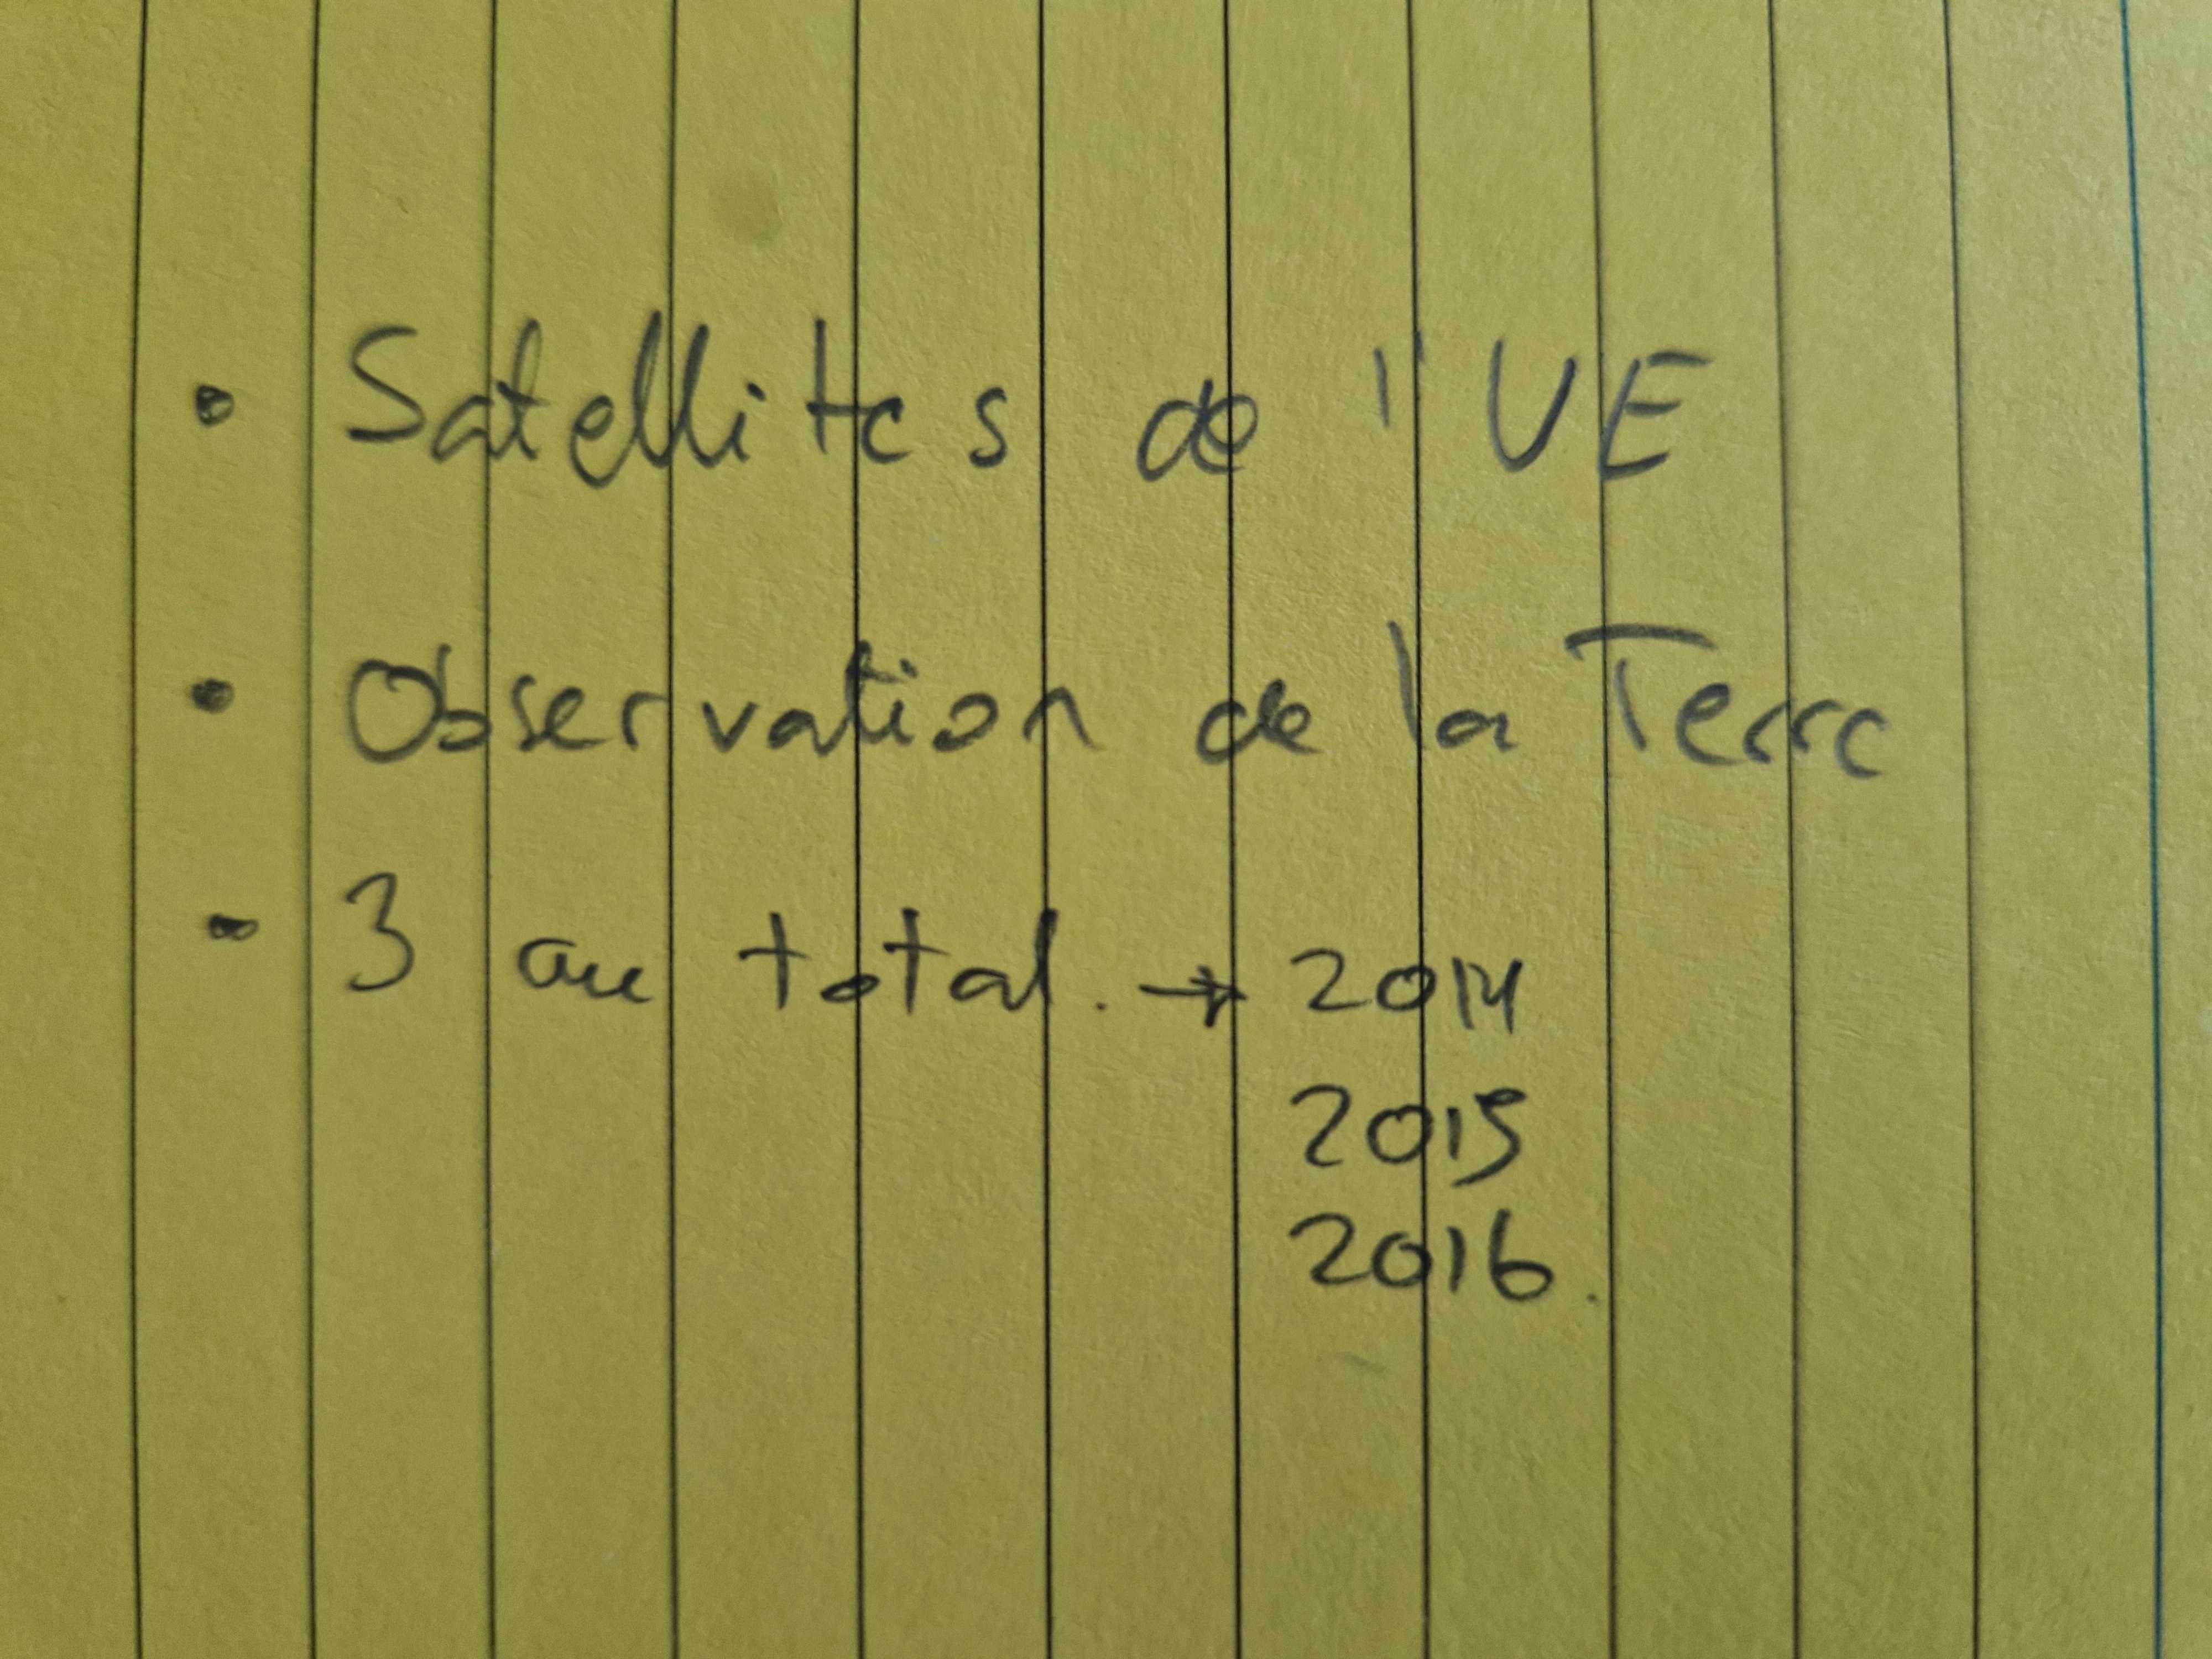 • Satellites de l'UE
• Observation de la Terre
• 3 au total. → 2014
2015
2016.